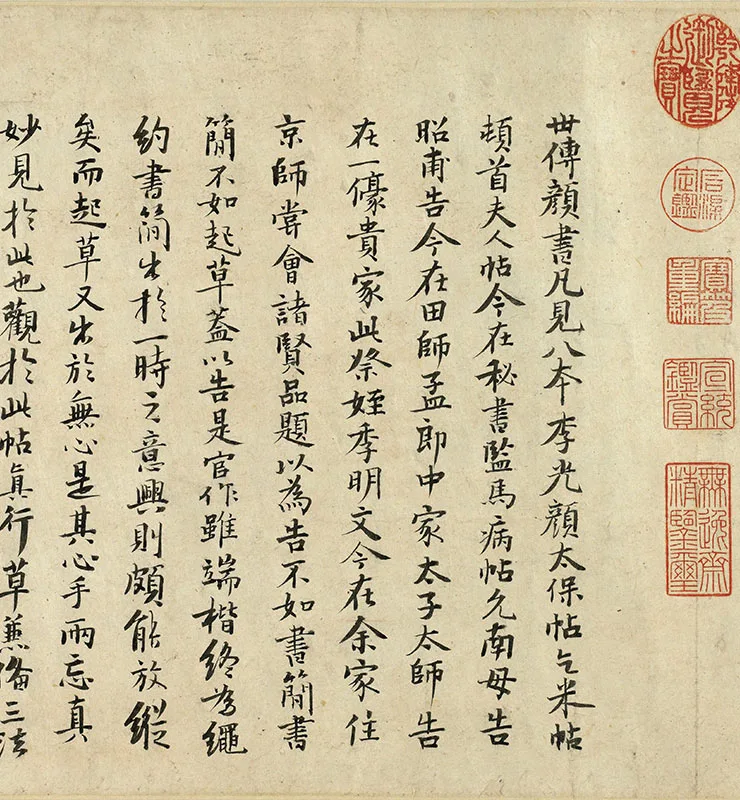 乾隆御覽之寶
石渠定鑑
寶笈重編
宣統鑑賞
無逸齋精鑒璽
世傳顏書凡見八本李光顏太保帖乞米帖
頓首夫人帖今在秘書監馬病帖允南母告
昭甫告今在田師孟郎中家太子太師告
在一儫貴家此祭姪季明文今在余家住
京師嘗會諸賢品題以為告不如書簡書
簡不如起草蓋以告是官作雖端楷終為繩
約書簡出扵一時之意興則頗能放縱
矣而起草又出於無心是其心手兩忘真
妙見扵此也觀扵此帖真行草兼備三法